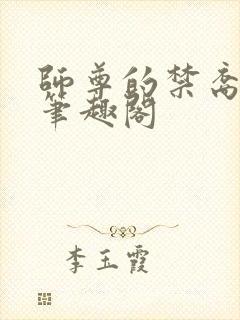 師尊的禁脔
筆趣閣
李玉霞